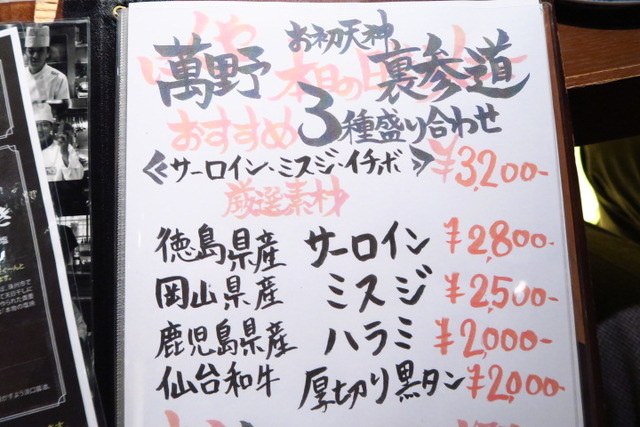 お初天神
萬野 裏参道
本日の
おすすめ 3種盛り合わせ
≪サーロイン・ミスジ・イチボ≫ ¥3,200-
厳選素材
徳島県産 サーロイン ¥2,800-
岡山県産 ミスジ ¥2,500-
鹿児島県産 ハラミ ¥2,000-
仙台和牛 厚切り黒タン ¥2,000-